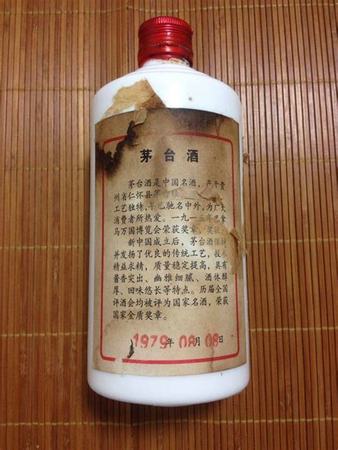 茅台酒
茅台酒是中国名酒，产于贵
州省仁怀县茅台
工艺独特，早已驰名中外，为广大
消费者所热爱。一九一五年巴拿
马万国博览会荣获奖章、奖状。
新中国成立后，茅台酒
并发扬了优良的传统工艺，技术
精益求精，质量稳定提高，具有
酱香突出、幽雅细腻、酒体醇
厚、回味悠长等特点。历届全国
评酒会均被评为国家名酒，荣获
国家金质奖章。
1979年08月08日